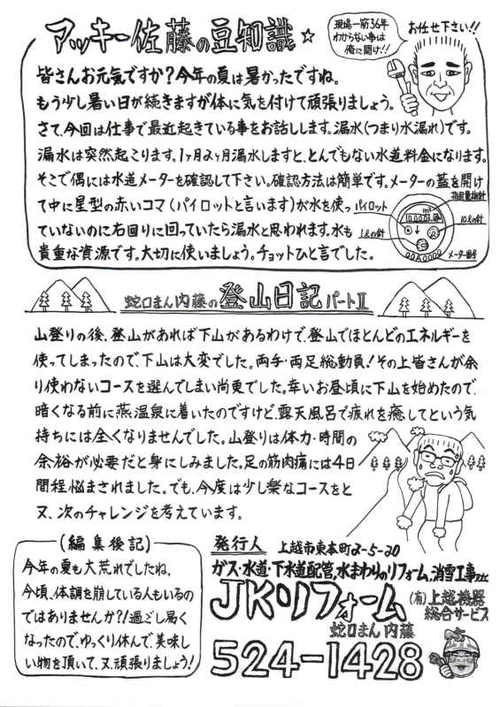 アッキー佐藤の豆知識☆
現場一筋36年
わからない事は
俺に聞け!!
お任せ下さい!!
皆さんお元気ですか?今年の夏は暑かったですね。
もう少し暑い日が続きますが体に気を付けて頑張りましょう。
さて、今回は仕事で最近起きている事をお話しします。漏水(つまり水漏れ)です。
漏水は突然起こります。1ヶ月2ヶ月漏水しますと、とんでもない水道料金になります。
そこで偶には水道メーターを確認して下さい。確認方法は簡単です。メーターの蓋を開け
て中に星型の赤いコマ(パイロットと言います)が水を使っ
ていないのに右回りに回っていたら漏水と思われます。水も
貴重な資源です。大切に使いましょう。チョットひと言でした。
パイロット
1Lの針
10Lの針
メーター番号
蛇口まん内藤の登山日記パートⅡ
山登りの後、登山があれば下山があるわけで、登山でほとんどのエネルギーを
使ってしまったので、下山は大変でした。両手・両足総動員!その上皆さんが余
り使わないコースを選んでしまい尚更でした。幸いお昼頃に下山を始めたので、
暗くなる前に燕温泉に着いたのですけど、露天風呂で疲れを癒してという気
持ちには全くなりませんでした。山登りは体力・時間の
余裕が必要だと身にしみました。足の筋肉痛には4日
間程悩まされました。でも、今度は少し楽なコースをと
又、次のチャレンジを考えています。
(編集後記)
今年の夏も大荒れでしたね。
今頃、体調を崩している人もいるの
ではありませんか?!過ごし易く
なったので、ゆっくり休んで、美味し
い物を頂いて、又頑張りましょう!
発行人 上越市東本町2-5-20
ガス・水道・下水道配管、水まわりのリフォーム、消雪工事etc
JKリフォーム
(有)上越機器
総合サービス
蛇口まん内藤
524-1428